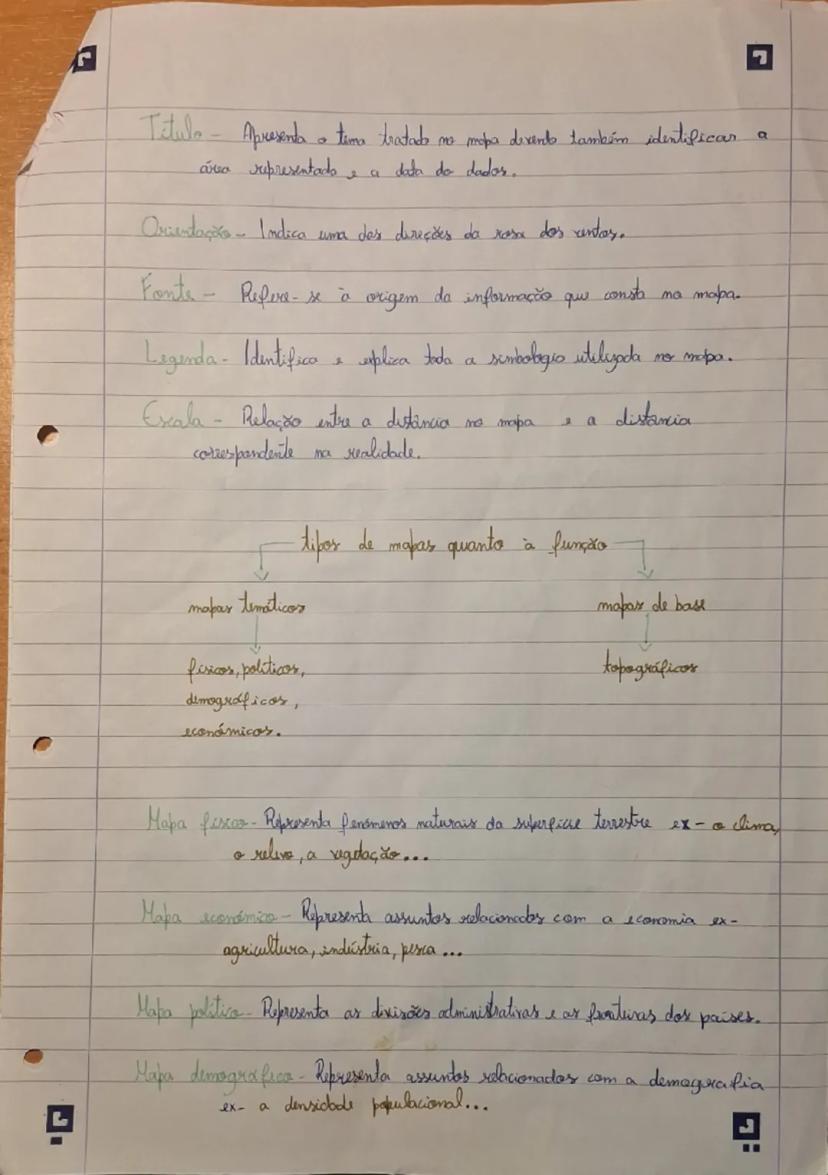 Título - Apresenta o tema tratado no mapa devendo também identificar a
área representada e a data do dados.
Orientação - Indica uma das direções da rosa dos ventos.
Fonte - Refere-se à origem da informação que consta no mapa.
Legenda - Identifica e explica toda a simbologia utilizada no mapa.
Escala - Relação entre a distância no mapa e a distância
correspondente na realidade.
tipos de mapas quanto à função
mapas temáticos mapas de base
físicos, políticos, topográficos
demográficos,
económicos.
Mapa físico - Representa fenómenos naturais da superfície terrestre ex - o clima,
o relevo, a vegetação...
Mapa económico - Representa assuntos relacionados com a economia ex-
agricultura, indústria, pesca...
Mapa político - Representa as divisões administrativas e as fronteiras dos países.
Mapa demográfico - Representa assuntos relacionados com a demografia
ex- a densidade populacional...